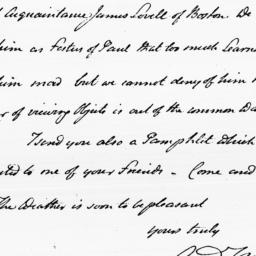 Acquaintance James Lovell of Boston. We
him as Festus of Paul that too much Learn
him mad but we cannot deny of him
of viewing Objects is out of the common
I send you also a Pamphlet which
to one of your Friends - Come and
The Weather is soon to be pleasant
yours truly